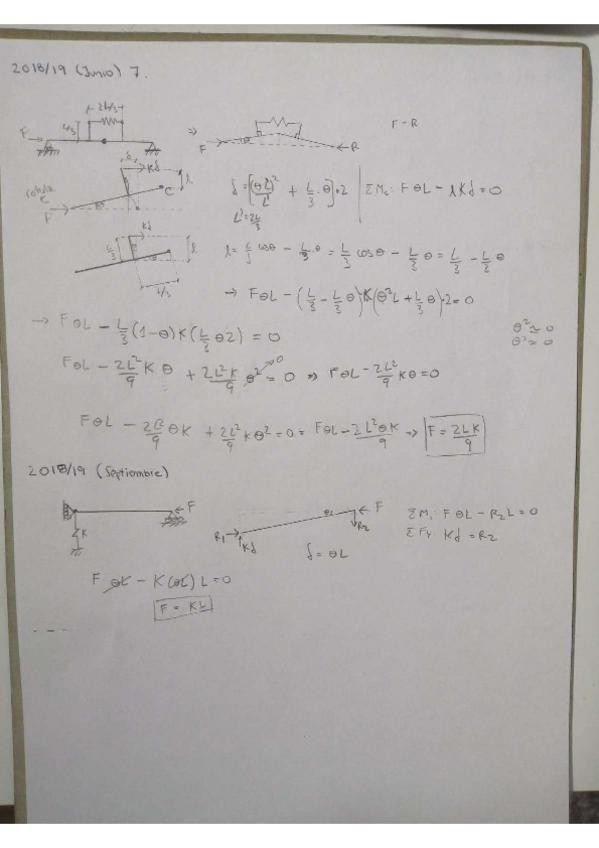 2018/19 (Junio) 7.
2L/3
L/3
F
⇒
F
R
F - R
δ
Kδ
rotula
C
F
θ
C
l
δ = [(θL)²/L' + L/3 · θ] · 2
ΣMc: FθL - lKδ = 0
L' = 2L/3
Kδ
L/3
l
L/3
l = L/3 cosθ - L/3 · θ = L/3 cosθ - L/3 θ = L/3 - L/3 θ
→ FθL - (L/3 - L/3 θ) K (θ²L + L/3 θ) · 2 = 0
→ FθL - L/3 (1-θ) K (L/3 θ2) = 0
θ² ≃ 0
θ³ ≃ 0
FθL - 2L²/9 Kθ + 2L²K/9 θ² = 0 ⇒ FθL - 2L²/9 Kθ = 0
0
FθL - 2L²/9 θK + 2L²/9 Kθ² = 0 = FθL - 2L²θK/9 ⇒ F = 2LK/9
2018/19 (Septiembre)
F
K
R1
Kδ
θ
F
R2
δ = θL
ΣM1: FθL - R2L = 0
ΣFy: Kδ = R2
F θL - K(θL) L = 0
F = KL